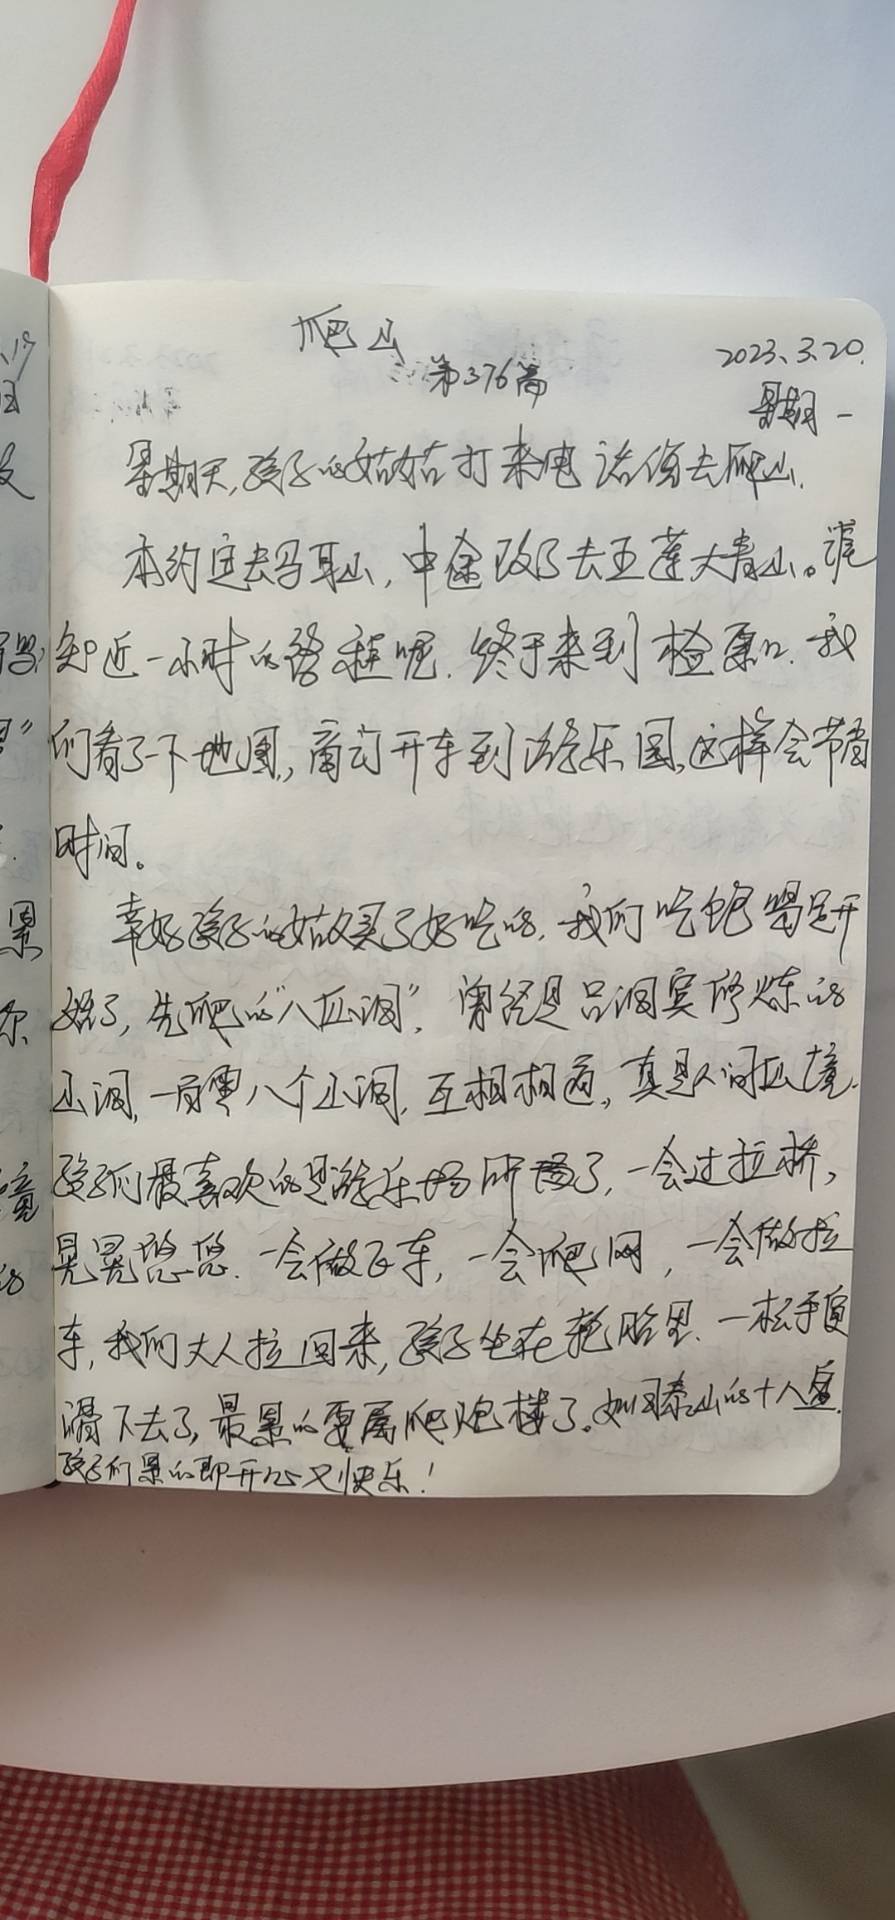 爬山
第376篇
2023.3.20.
星期一
星期天,孩子的姑姑打来电话约去爬山.
本约定去马耳山,中途改了去五莲大青山。谁
知近一小时的路程呢.终于来到检票口.我
们看了一下地图,商订开车到游乐园,这样会节省
时间。
幸好孩子的姑故买了好吃的,我们吃饱喝足开
始了,先爬的"八仙洞",曾经是吕洞宾修炼的
山洞,一有八个山洞,互相相通,真是人间仙境.
孩子们最喜欢的是游乐场所了,一会过拉桥,
晃晃悠悠.一会做飞车,一会爬网,一会做拉
车,我们大人拉回来,孩子坐在轮胎里.一松手便
滑下去了,最累的要属爬炮楼了。如同泰山的十八盘.
孩子们累的即开心又快乐!